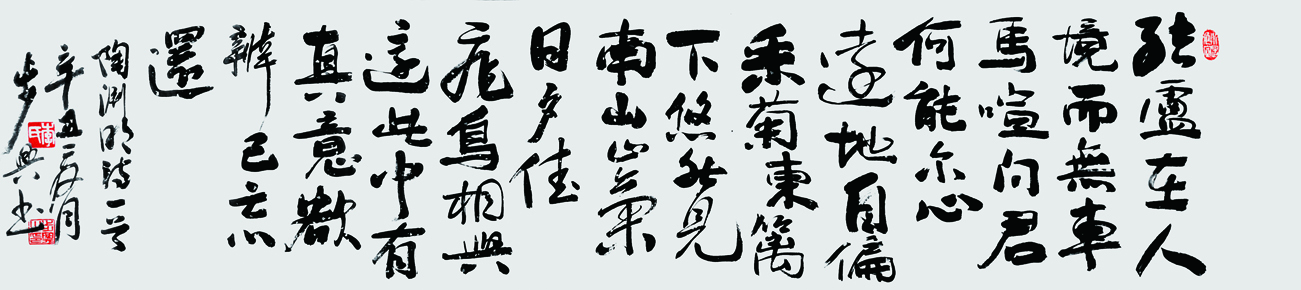 结廬在人
境而無車
馬喧问君
何能尔心
遠地自偏
采菊東籬
下悠然見
南山山氣
日夕佳
飛鳥相與
還此中有
真意欲
辨已忘
還
陶渊明诗一首
辛丑夏月
步興书
李氏